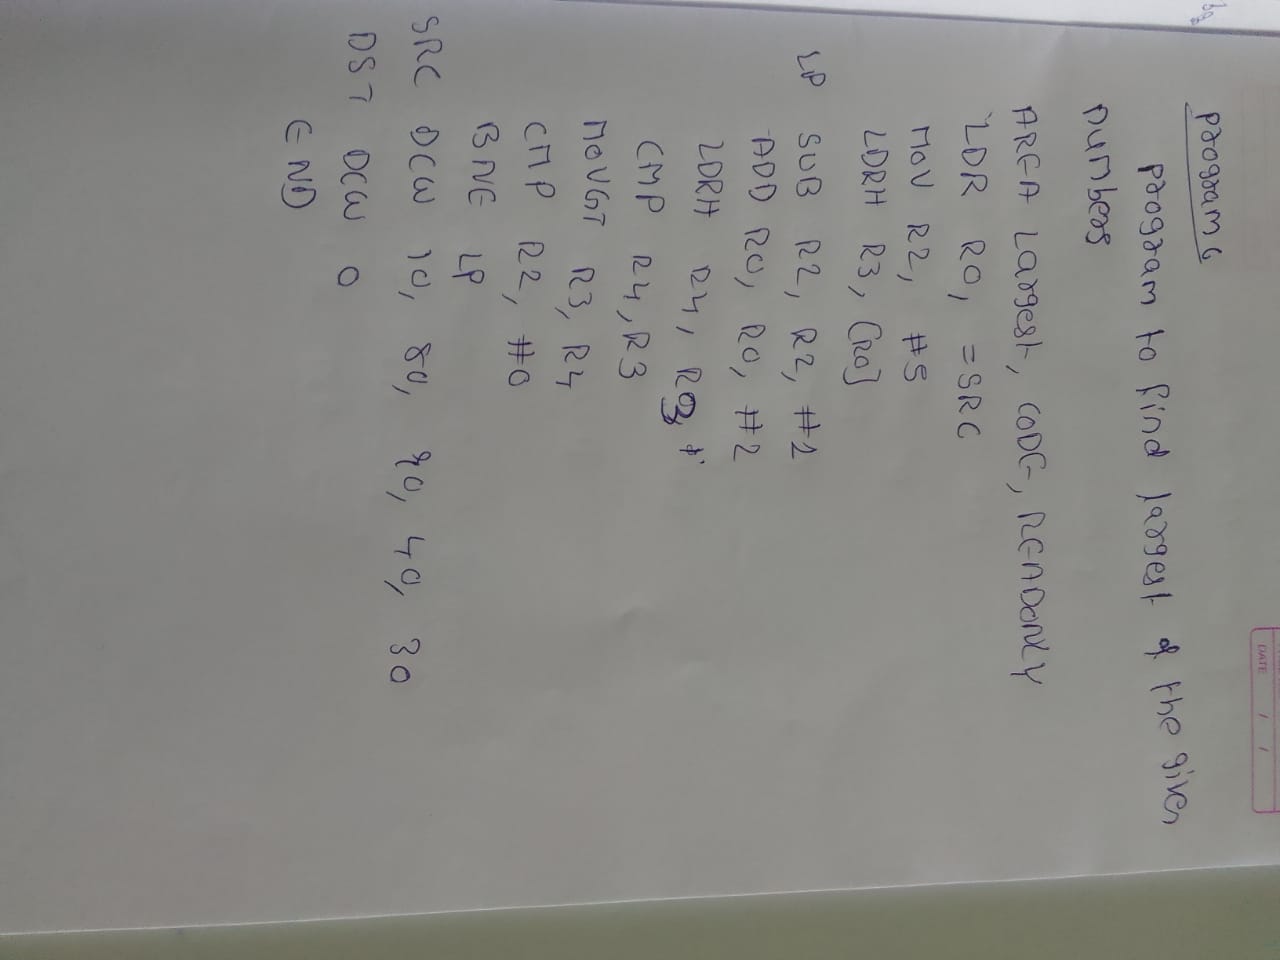 program 6
program to find largest of the given
numbers
AREA Largest, CODE, READONLY
LDR R0, =SRC
MOV R2, #5
LDRH R3, [R0]
LP SUB R2, R2, #1
ADD R0, R0, #2
LDRH R4,
CMP R4, R3
MOVGT R3, R4
CMP R2, #0
BNE LP
SRC DCW 10, 80, 90, 40, 30
DST DCW 0
END
DATE / /